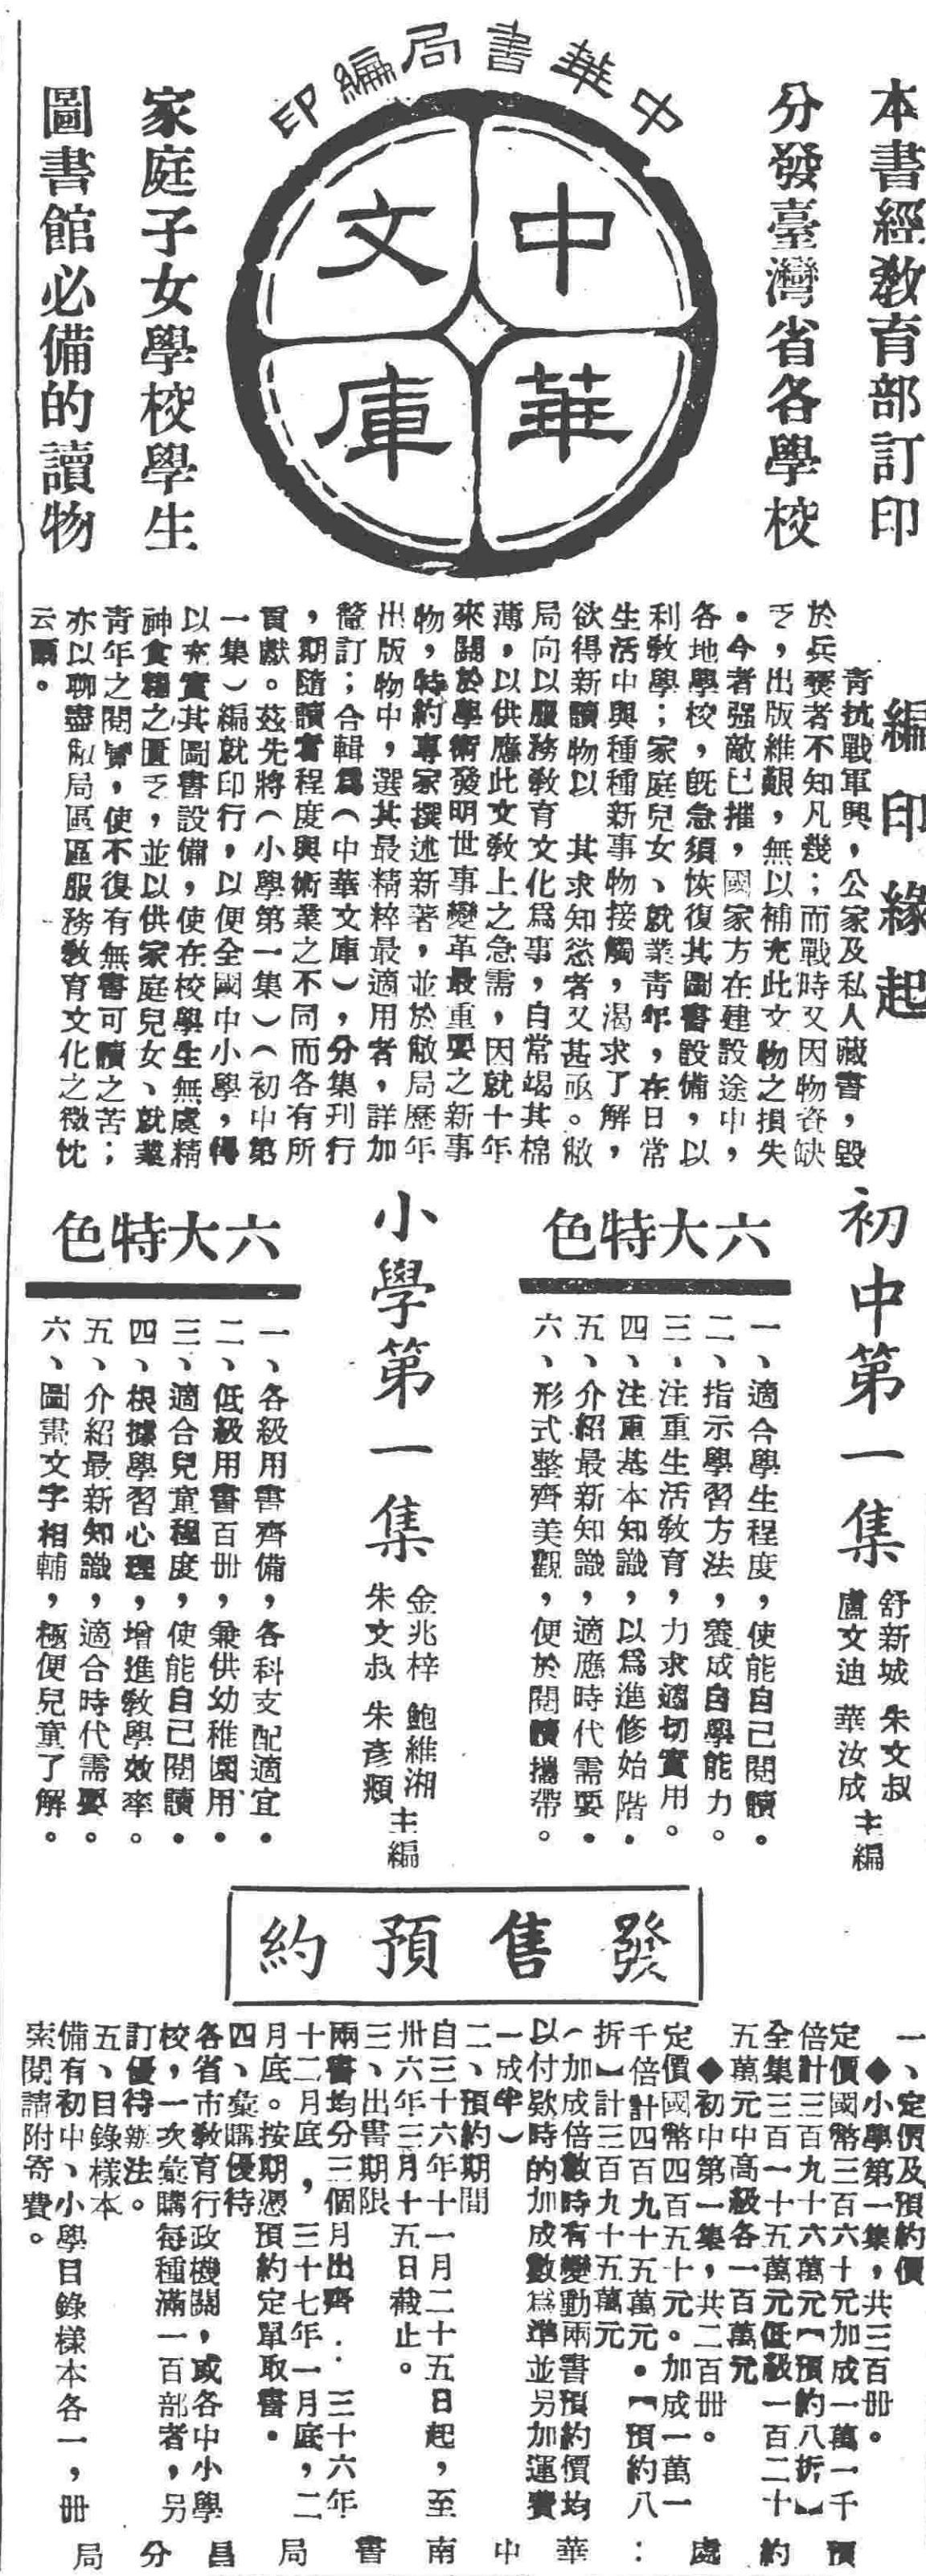 本書經敎育部訂印
分發臺灣省各學校
中華書局編印
中華文庫
家庭子女學校學生
圖書館必備的讀物
編印緣起
青抗戰軍興，公家及私人藏書，毀
於兵燹者不知凡幾；而戰時又因物資缺
乏，出版維艱，無以補充此文物之損失
。今者强敵已摧，國家方在建設途中，
各地學校，旣急須恢復其圖書設備，以
利敎學；家庭兒女、就業靑年，在日常
生活中與種種新事物接觸，渴求了解，
欲得新讀物以　其求知慾者又甚亟。敝
局向以服務敎育文化爲事，自常竭其棉
薄，以供應此文敎上之急需，因就十年
來關於學術發明世事變革最重要之新事
物，特約專家撰述新著，並於敝局歷年
出版物中，選其最精粹最適用者，詳加
釐訂；合輯爲（中華文庫），分集刊行
，期隨讀者程度與術業之不同而各有所
貢獻。茲先將（小學第一集）（初中第
一集）編就印行，以便全國中小學，得
以充實其圖書設備，使在校學生無虞精
神食糧之匱乏，並以供家庭兒女、就業
靑年之閱覽，使不復有無書可讀之苦；
亦以聊盡敝局區區服務敎育文化之微忱
云爾。
初中第一集
舒新城　朱文叔
盧文迪　華汝成
主編
六大特色
一、適合學生程度，使能自己閱讀。
二、指示學習方法，養成自學能力。
三、注重生活敎育，力求適切實用。
四、注重基本知識，以爲進修始階。
五、介紹最新知識，適應時代需要。
六、形式整齊美觀，便於閱讀攜帶。
小學第一集
金兆梓　鮑維湘
朱文叔　朱彥頫
主編
六大特色
一、各級用書齊備，各科支配適宜。
二、低級用書百册，兼供幼稚園用。
三、適合兒童程度，使能自己閱讀。
四、根據學習心理，增進敎學效率。
五、介紹最新知識，適合時代需要。
六、圖畫文字相輔，極便兒童了解。
發售預約
一、定價及預約價
◆小學第一集，共三百册。
定價國幣三百六十元加成一萬一千
倍計三百九十六萬元【預約八折】
全集三百一十五萬元低級一百二十
五萬元中高級各一百萬元
◆初中第一集，共二百册。
定價國幣四百五十元。加成一萬一
千倍計四百九十五萬元。【預約八
折】計三百九十五萬元
（加成倍數時有變動兩書預約價均
以付欵時的加成數爲準並另加運費
一成半）
二、預約期間
自三十六年十一月二十五日起，至
卅六年三月十五日截止。
三、出書期限
兩書均分三個月出齊．．三十六年
十二月底，三十七年一月底，二
月底。按期憑預約定單取書。
四、彙購優待
各省市敎育行政機關，或各中小學
校，一次彙購每種滿一百部者，另
訂優待辦法。
五、目錄樣本
備有初中、小學目錄樣本各一，册
索閱請附寄費。
預約處：中華書局南昌分局